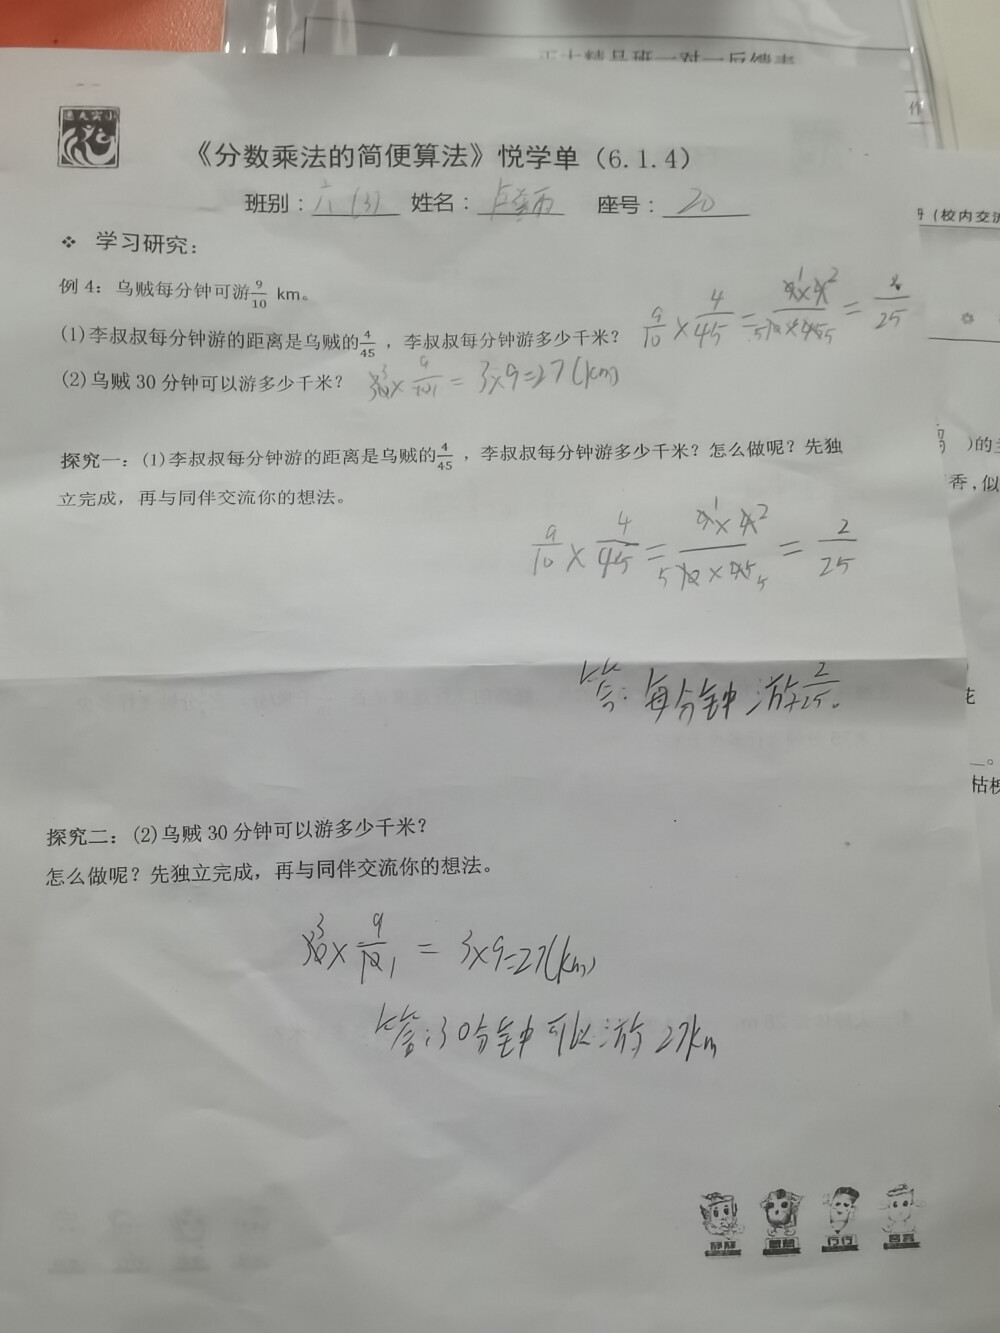 正大精品班一对一反馈表
作
《分数乘法的简便算法》悦学单（6.1.4）
班别：六(3) 姓名： 座号：20
（校内交流
❖ 学习研究：
例 4：乌贼每分钟可游9/10 km。
(1)李叔叔每分钟游的距离是乌贼的4/45，李叔叔每分钟游多少千米？ 9/10 × 4/45 = 9¹×4²/5 10×45 5 = 2/25
(2)乌贼 30 分钟可以游多少千米？ 30³× 9/10 1 = 3×9=27(km)
)的
香，似
探究一：(1)李叔叔每分钟游的距离是乌贼的4/45，李叔叔每分钟游多少千米？怎么做呢？先独
立完成，再与同伴交流你的想法。
9/10 × 4/45 = 9¹×4²/5 10×45 5 = 2/25
答：每分钟游2/25。
探究二：(2)乌贼 30 分钟可以游多少千米？
怎么做呢？先独立完成，再与同伴交流你的想法。
30³× 9/10 1 = 3×9=27(km)
答：30分钟可以游27km